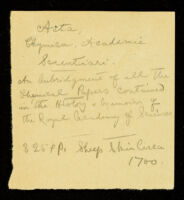 Acta,
Chymica, Academiæ
Scientiari.
An Abridgment of all the
Chemical Papers contained
in the History & Memoirs of
the Royal Academy of Sciences
825 pp. Sheep Skin Circa
1700.